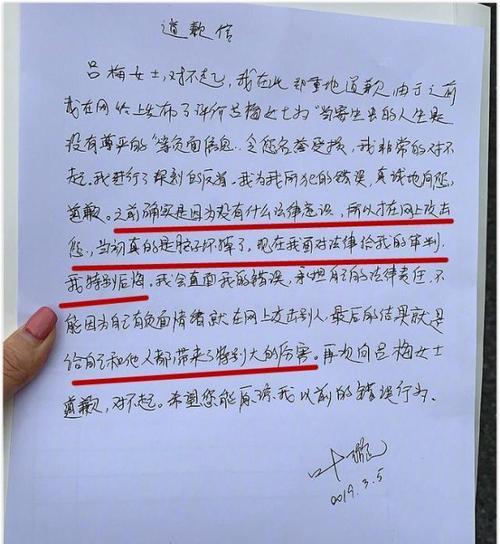 道歉信
吕梅女士,对不起,我在此郑重地道歉,由于之前
我在网络上发布了评价吕梅女士为“当寄生虫的人生是
没有尊严的”等负面信息..令您名誉受损,我非常的对不
起.我进行了深刻的反省.我为我所犯的错误,真诚地向您
道歉。之前确实是因为没有什么法律意识,所以才在网上攻击
您.,当初真的是脑子坏掉了。现在我面对法律给我的审判.
我特别后悔。我会直面我的错误,承担自己的法律责任,不
能因为自己有负面情绪就在网上攻击别人.最后的结果就是
给自己和他人都带来了特别大的厉害。再次向吕梅女士
道歉,对不起。希望您能原谅我以前的错误行为.
叶
2019.3.5